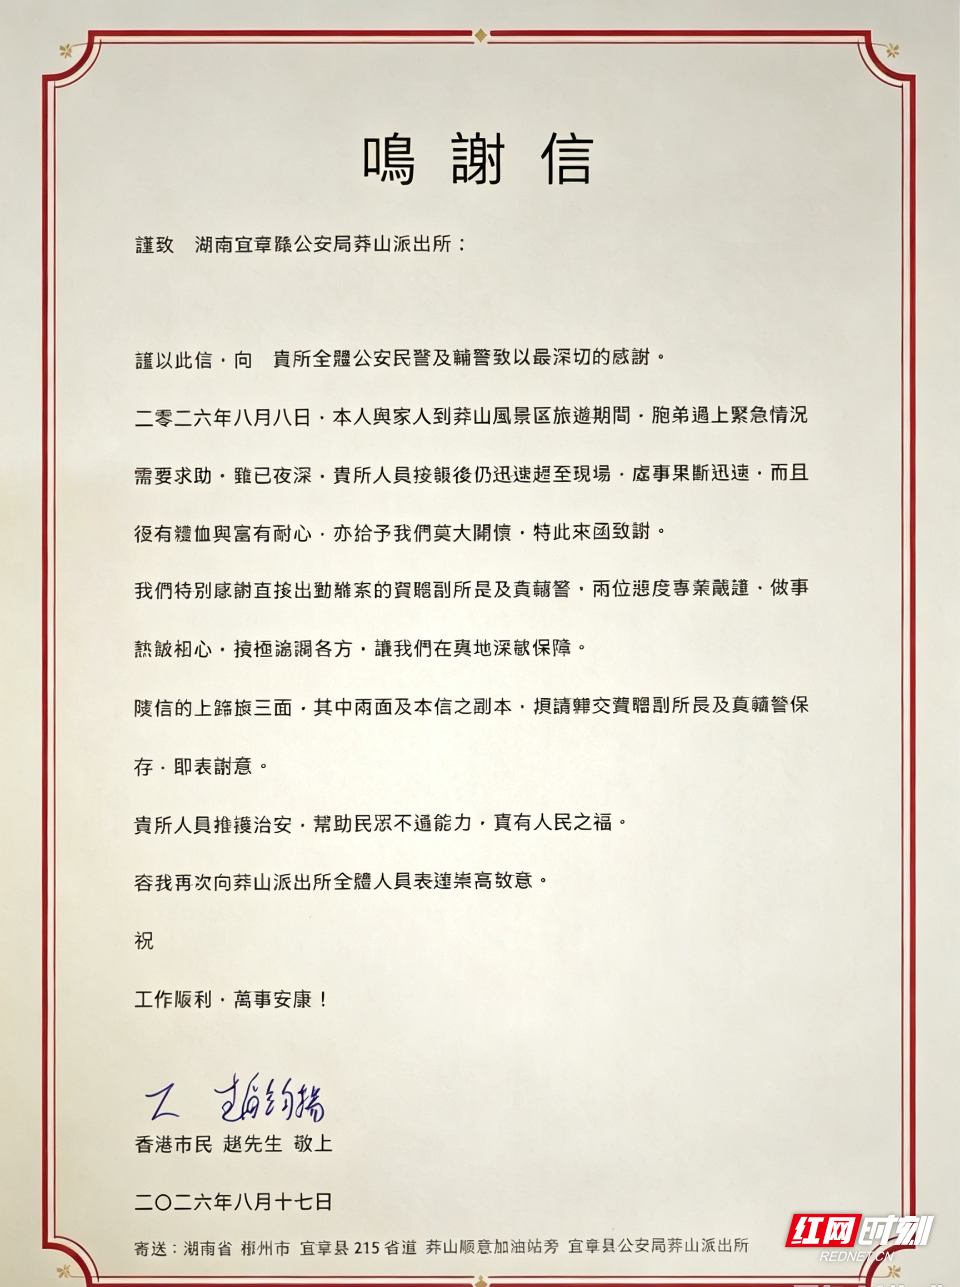 鳴謝信
謹致　湖南宜章縣公安局莽山派出所：
謹以此信，向　貴所全體公安民警及輔警致以最深切的感謝。
二零二六年八月八日，本人與家人到莽山風景區旅遊期間，胞弟遇上緊急情況
需要求助，雖已夜深，貴所人員接報後仍迅速趕至現場，處事果斷迅速，而且
很有禮恤與富有耐心，亦給予我們莫大關懷，特此來函致謝。
我們特別感謝直接出勤 案的 副所 及 警，兩位態度專業 ，做事
心， 各方，讓我們在 地深 保障。
信的上 三面，其中兩面及本信之副本， 請 交 副所長及 警保
存，即表謝意。
貴所人員維護治安，幫助民眾不遺能力，真有人民之福。
容我再次向莽山派出所全體人員表達崇高敬意。
祝
工作順利，萬事安康！
香港市民 趙先生 敬上
二〇二六年八月十七日
寄送：湖南省 郴州市 宜章县 215 省道 莽山顺意加油站旁 宜章县公安局莽山派出所
红网时刻
REDNET.CN